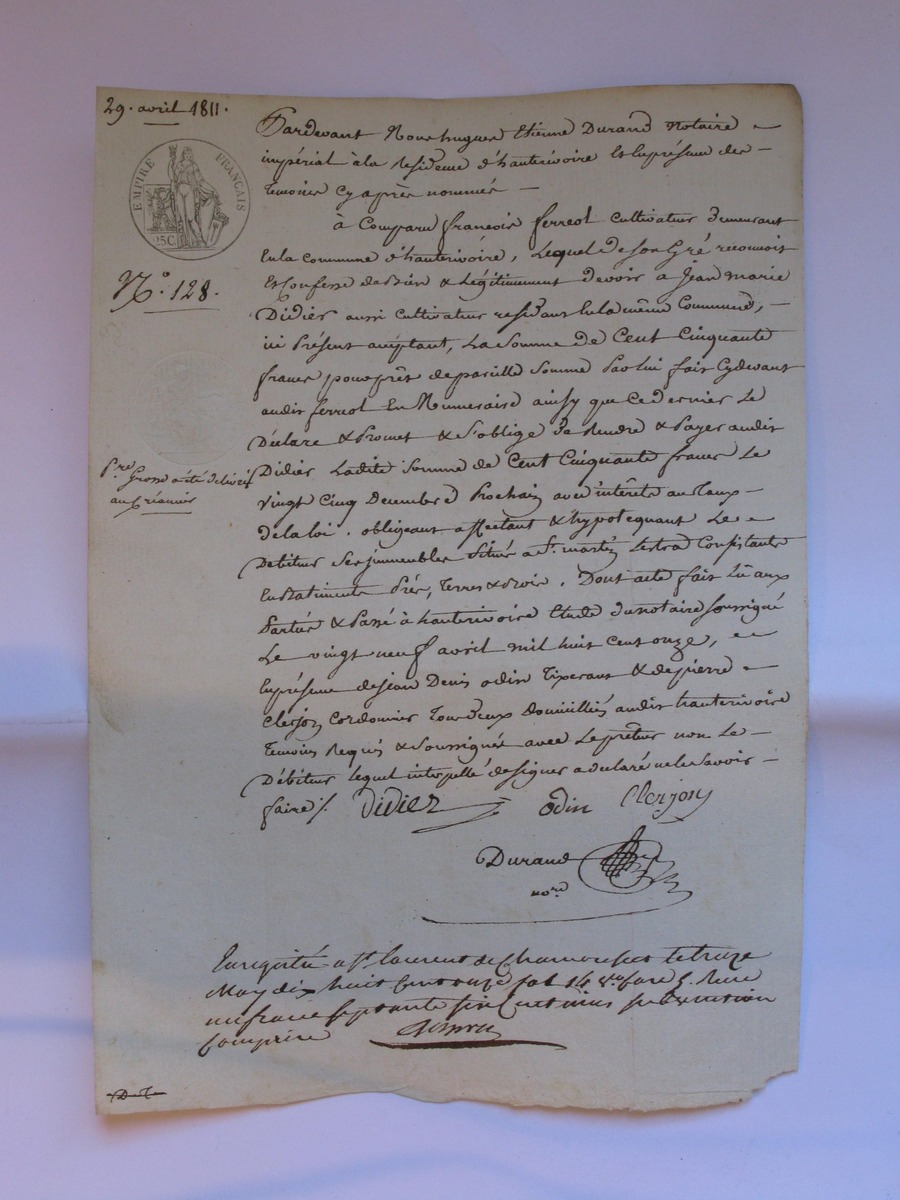 29. avril 1811.
EMPIRE FRANÇAIS
25C
N.° 128.
Pre. Grosse a été delivré
au Créancier
Pardevant Nous hugues Etienne Durand Notaire
impérial à la Residence d'hauterivoire Et En présence des
Temoins Cy après nommés
à Comparu françois ferreol Cultivateur demeurant
En la Commune d'hauterivoire, Lequel de son Gré reconnoit
Et Confesse de bien & Légitimement devoir à Jean marie
Didier aussi Cultivateur residant En la même Commune,
ici Présent acceptant, La Somme de Cent Cinquante
francs pour prêt de pareille Somme Par lui fait Cy devant
audit ferreol En Numeraire ainsy que Ce dernier Le
Déclare & Promet & S'oblige de Rendre & Payer audit
Didier Ladite Somme de Cent Cinquante francs Le
vingt Cinq Decembre Prochain avec intérêts au Taux
de la loi. obligeant affectant & hypotequant Le
Débiteur Ses immeubles Situés a St. martin Lestra Consistants
En Batiments Prés, Terres & Bois. Dont acte fait Lû aux
Parties & Passé à hauterivoire Etude du notaire Soussigné
Le vingt neuf avril mil huit Cent onze,
En présence de jean Denis odin Tixerant & de pierre
Clerjon Cordonnier Tous deux Domiciliés audit hauterivoire
Temoins Requis & Soussignés avec Le prêteur non Le
Débiteur Lequel interpellé de signer a declaré ne le Savoir
faire /. Didier odin Clerjon
Durand
nore
Enregistré a St. laurent de Chamousset le treize
May dix huit Cent onze fol 14 vo. Case 5. Reçu
un franc septante six Centimes Subvention
Comprise
D. T.